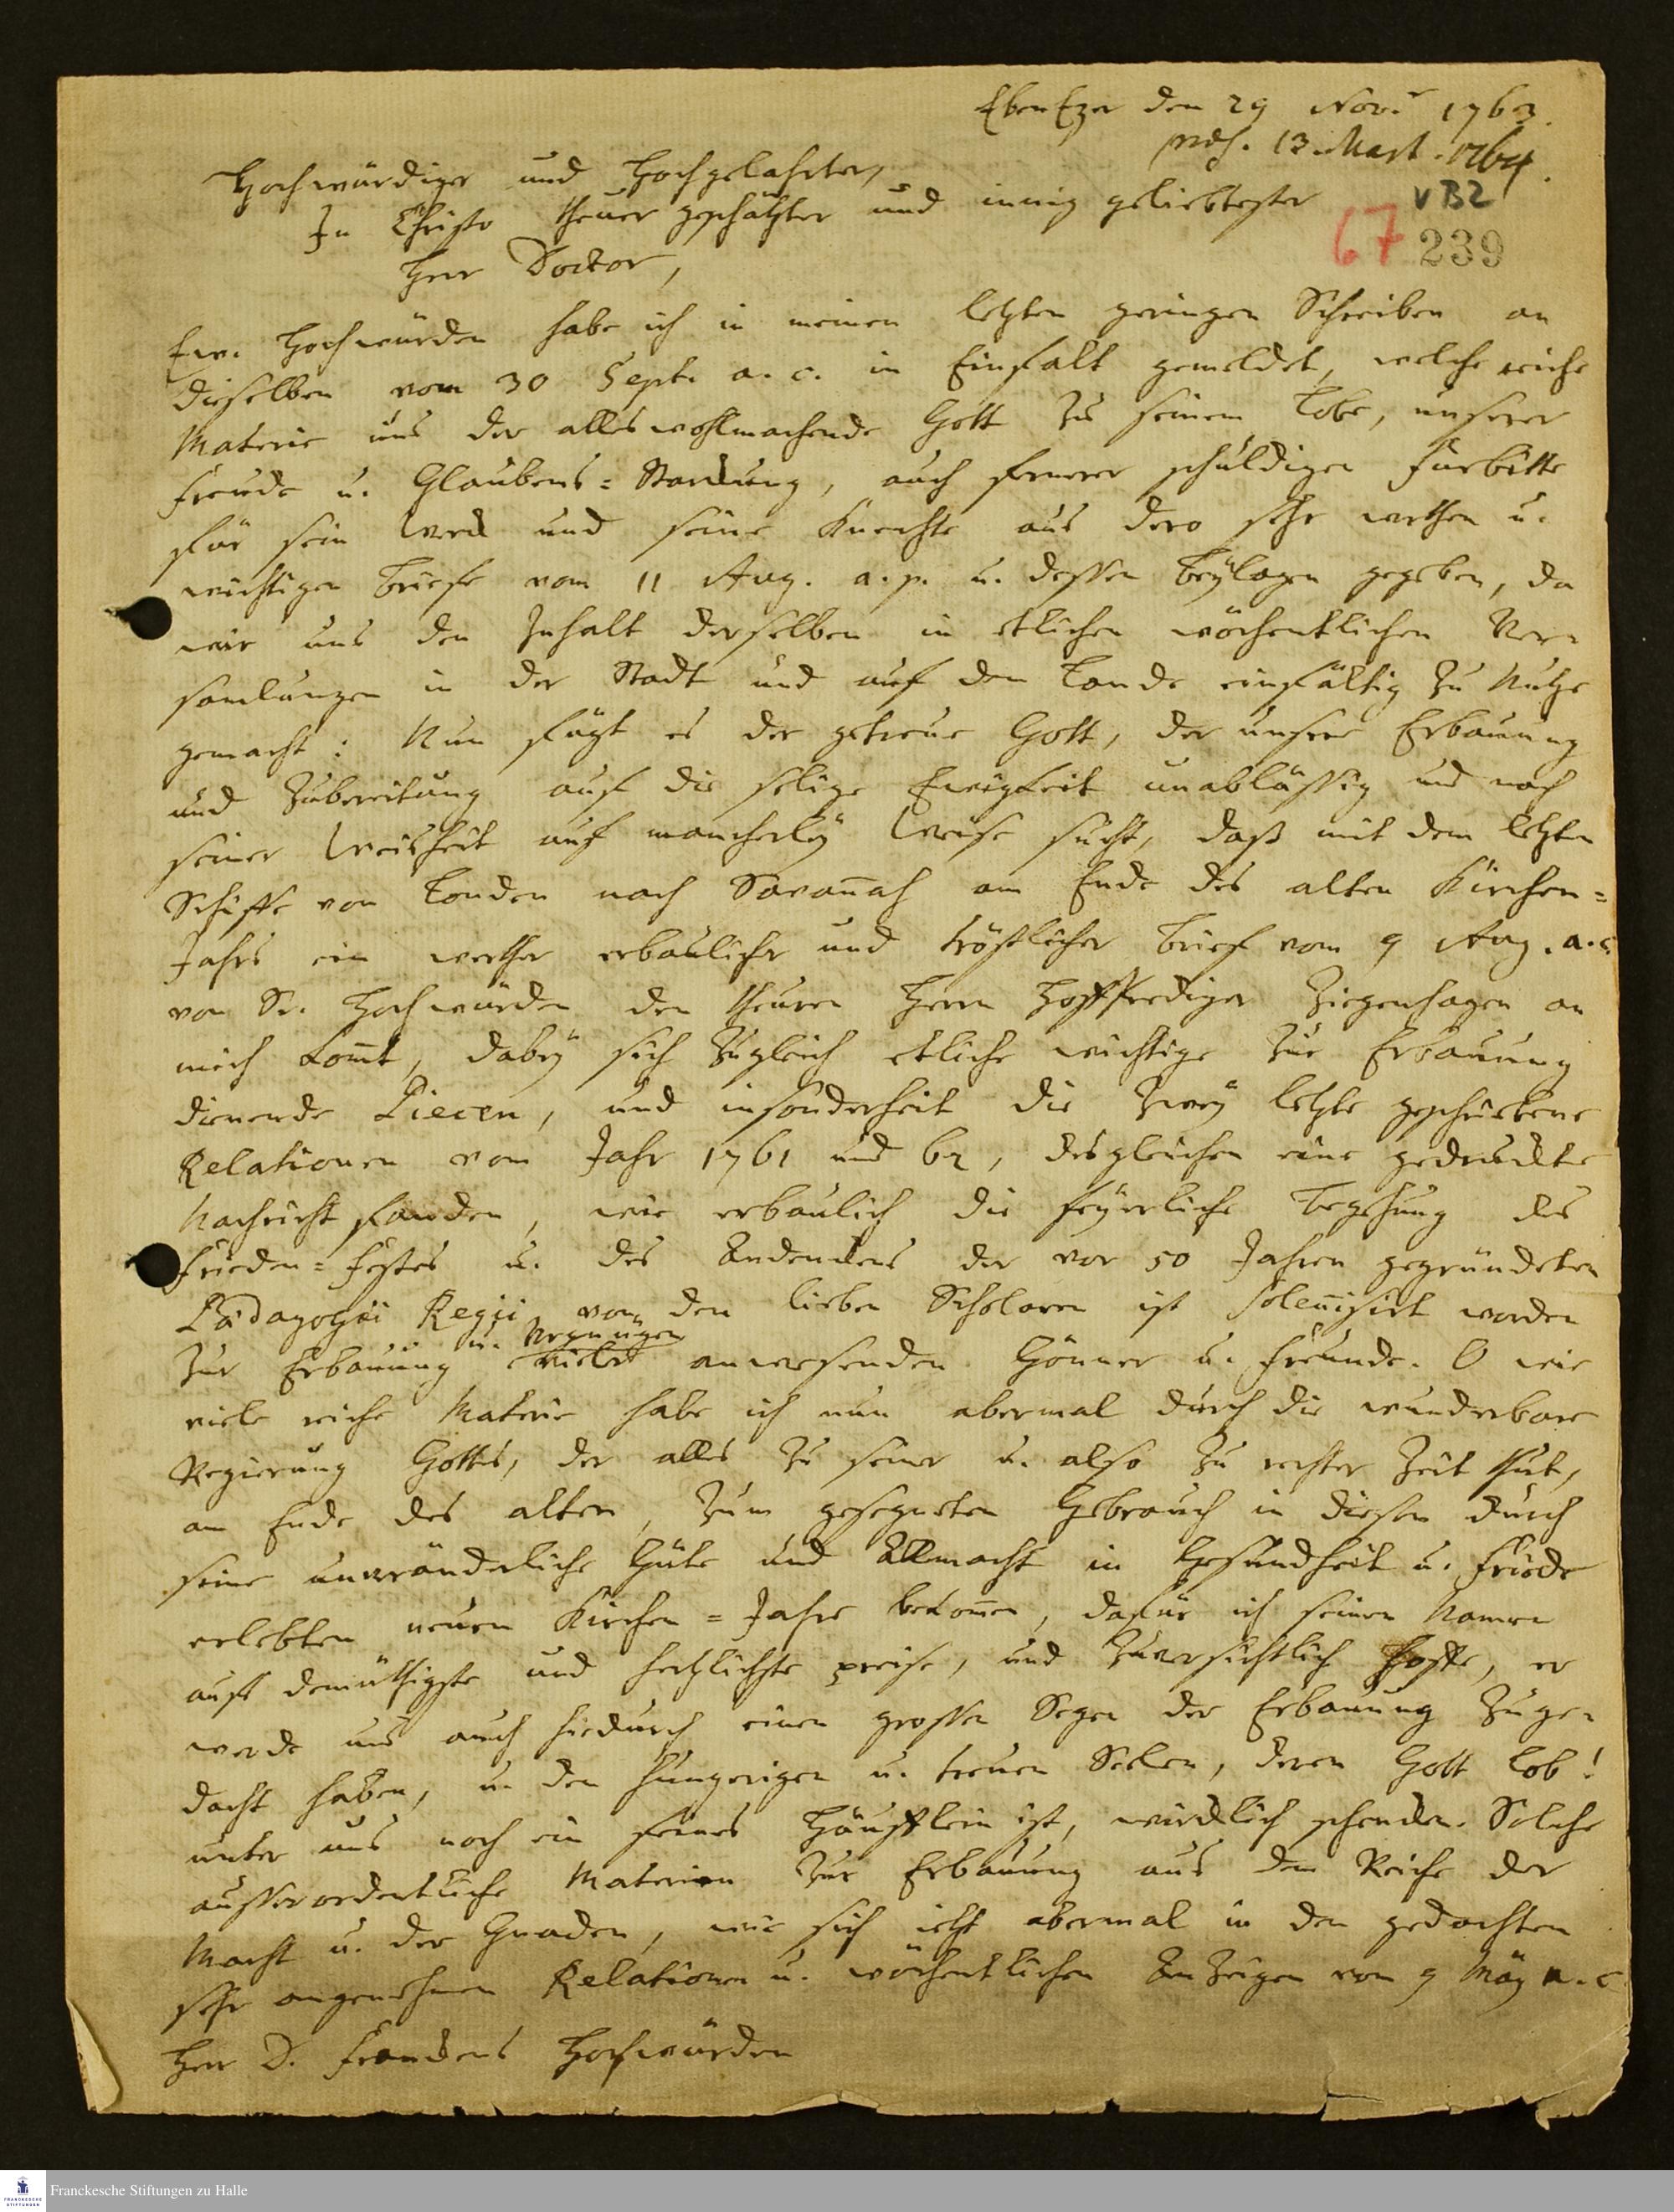 EbenEzer den 29 Nov.r 1763.
präs. 13. Mart. 1764.
Hochwürdiger und Hochgelahrter,
In Christo theuer geschätzter und innig geliebtester
VB2
67 239
Herr Doctor,
Ew. Hochwürden habe ich in meinem letzten geringen Schreiben an
dieselben vom 30 Sept. a. c. in Einfalt gemeldet, welche reiche
Materie uns der alles wohlmachende Gott zu seinem Lobe, unserer
Freude u. Glaubens=Stärckung, auch fernerer schuldigen Fürbitte
für sein Werck und seine Knechte aus dero sehr werthen u.
wichtigen Briefe vom 11 Aug. a. p. u. dessen Beylagen gegeben, da
wir uns den Inhalt derselben in etlichen wöchentlichen Ver-
samlungen in der Stadt und auf dem Lande einfältig zu Nutze
gemacht: Nun fügt es der getreue Gott, der unsere Erbauung
und Zubereitung auf die selige Ewigkeit unabläßig und nach
seiner Weisheit auf mancherley Weise sucht, daß mit dem letzten
Schiffe von London nach Savan̄ah am Ende des alten Kirchen=
Jahrs ein werther erbaulicher und tröstlicher Brief vom 9 Aug. a. c.
von Sr. Hochwürden dem theuren Herrn Hofprediger Ziegenhagen an
mich kom̄t, dabey sich zugleich etliche wichtige zur Erbauung
dienende Piecen, und insonderheit die zwey letzte geschriebene
Relationen vom Jahr 1761 und 62, desgleichen eine gedruckte
Nachricht fanden, wie erbaulich die feyerliche Begehung des
Frieden=Festes u. des Andenckens der vor 50 Jahren gegründeten
Pädagogii Regii, von den lieben Scholaren ist solen̄isirt worden
u. Vergnügen
zur Erbauung vieler anwesenden Gönner u. Freunde. O wie
viele reiche Materie habe ich nun abermal durch die wunderbare
Regierung Gottes, der alles zu seiner u. also zu rechter Zeit thut,
am Ende des alten, zum gesegneten Gebrauch in diesem durch
seine unveränderliche Güte und Allmacht in Gesundheit u. Friede
erlebten neuen Kirchen=Jahre bekom̄en, dafür ich seinen Namen
aufs demüthigste und hertzlichste preise, und zuversichtlich hoffe, er
werde uns auch hiedurch einen grossen Segen der Erbauung zuge-
dacht haben, u. den hungerigen u. treuen Seelen, deren Gott Lob!
unter uns noch ein feines Häufflein ist, wircklich schencken. Solche
ausserordentliche Materien zur Erbauung aus dem Reiche der
Macht u. der Gnaden, wie sich jetzt abermal in den gedachten
sehr angenehmen Relationen u. wöchentlichen Anzeigen vom 9 May a. c
Herr D. Franckens Hochwürden
FRANCKESCHE STIFTUNGEN
Franckesche Stiftungen zu Halle